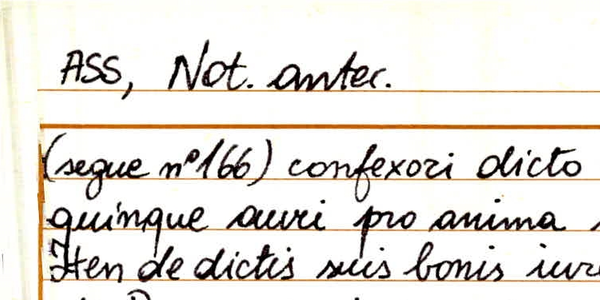 ASS, Not. antec.
(segue n° 166) confexori dicto
quinque auri pro anima
Iten de dictis suis bonis iure